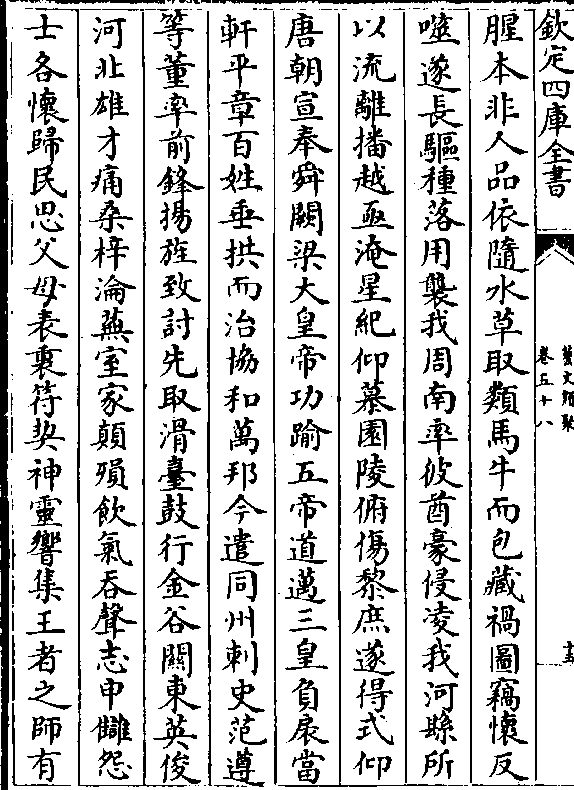 欽定四庫全書
藝文類聚
卷五十八
腥本非人品依隨水草取類馬牛而包藏禍圖竊懷反
噬遂長驅種落用襲我周南率彼酋豪侵凌我河縣所
以流離播越亟淹星紀仰慕園陵俯傷黎庶遂得式仰
唐朝宣奉舜闕梁大皇帝功踰五帝道邁三皇負扆當
軒平章百姓垂拱而治協和萬邦今遣同州刺史范遵
等董率前鋒揚旌致討先取滑臺鼓行金谷關東英俊
河北雄才痛桑梓淪蕪室家顛殞飲氣吞聲志申讎怨
士各懷歸民思父母表裏符契神靈響集王者之師有